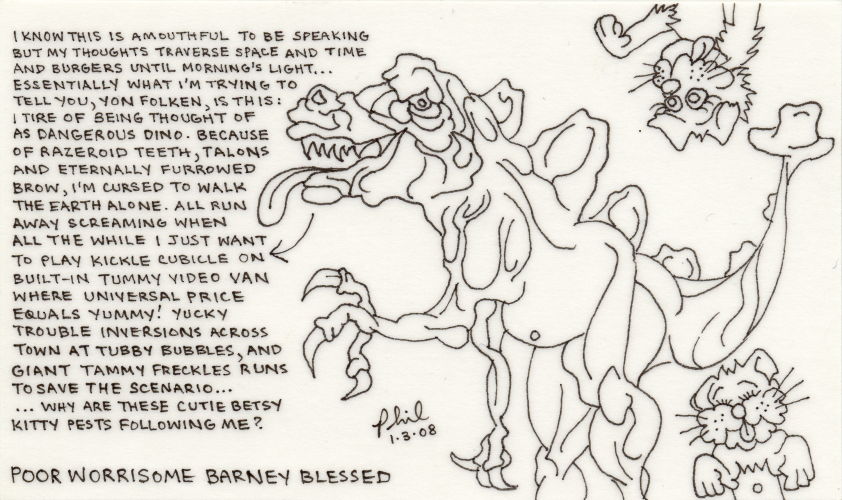 I KNOW THIS IS A MOUTHFUL TO BE SPEAKING
BUT MY THOUGHTS TRAVERSE SPACE AND TIME
AND BURGERS UNTIL MORNING'S LIGHT...
ESSENTIALLY WHAT I'M TRYING TO
TELL YOU, YON FOLKEN, IS THIS:
I TIRE OF BEING THOUGHT OF
AS DANGEROUS DINO. BECAUSE
OF RAZEROID TEETH, TALONS
AND ETERNALLY FURROWED
BROW, I'M CURSED TO WALK
THE EARTH ALONE. ALL RUN
AWAY SCREAMING WHEN
ALL THE WHILE I JUST WANT
TO PLAY KICKLE CUBICLE ON
BUILT-IN TUMMY VIDEO VAN
WHERE UNIVERSAL PRICE
EQUALS YUMMY! YUCKY
TROUBLE INVERSIONS ACROSS
TOWN AT TUBBY BUBBLES, AND
GIANT TAMMY FRECKLES RUNS
TO SAVE THE SCENARIO...
... WHY ARE THESE CUTIE BETSY
KITTY PESTS FOLLOWING ME?
Phil
1.3.08
POOR WORRISOME BARNEY BLESSED